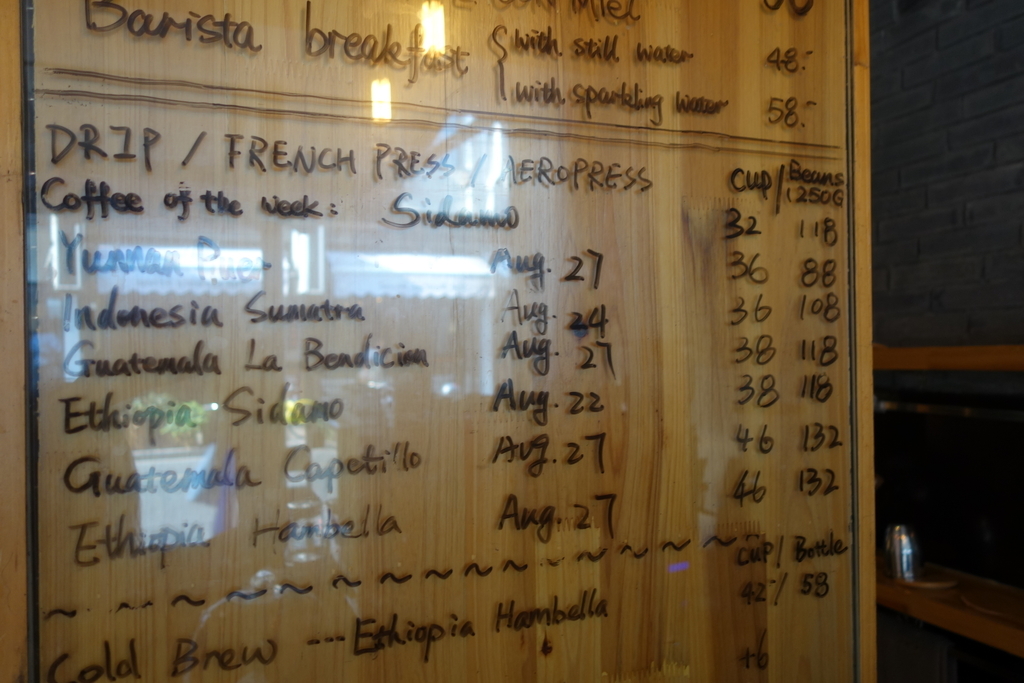 Con Miel
Barista breakfast { with still water 48.-
with sparkling water 58.-
DRIP / FRENCH PRESS / AEROPRESS CUP / Beans 1250G
Coffee of the week: Sidamo 32 118
Yunnan Aug. 27 36 88
Indonesia Sumatra Aug. 24 36 108
Guatemala La Bendicion Aug. 27 38 118
Ethiopia Sidamo Aug. 22 38 118
Guatemala Capotillo Aug. 27 46 132
Ethiopia Hambella Aug. 27 46 132
~ ~ ~ ~ ~ ~ ~ ~ ~ ~ ~ ~ ~ ~ ~ CUP / Bottle
Cold Brew --- Ethiopia Hambella 42 / 58
+6